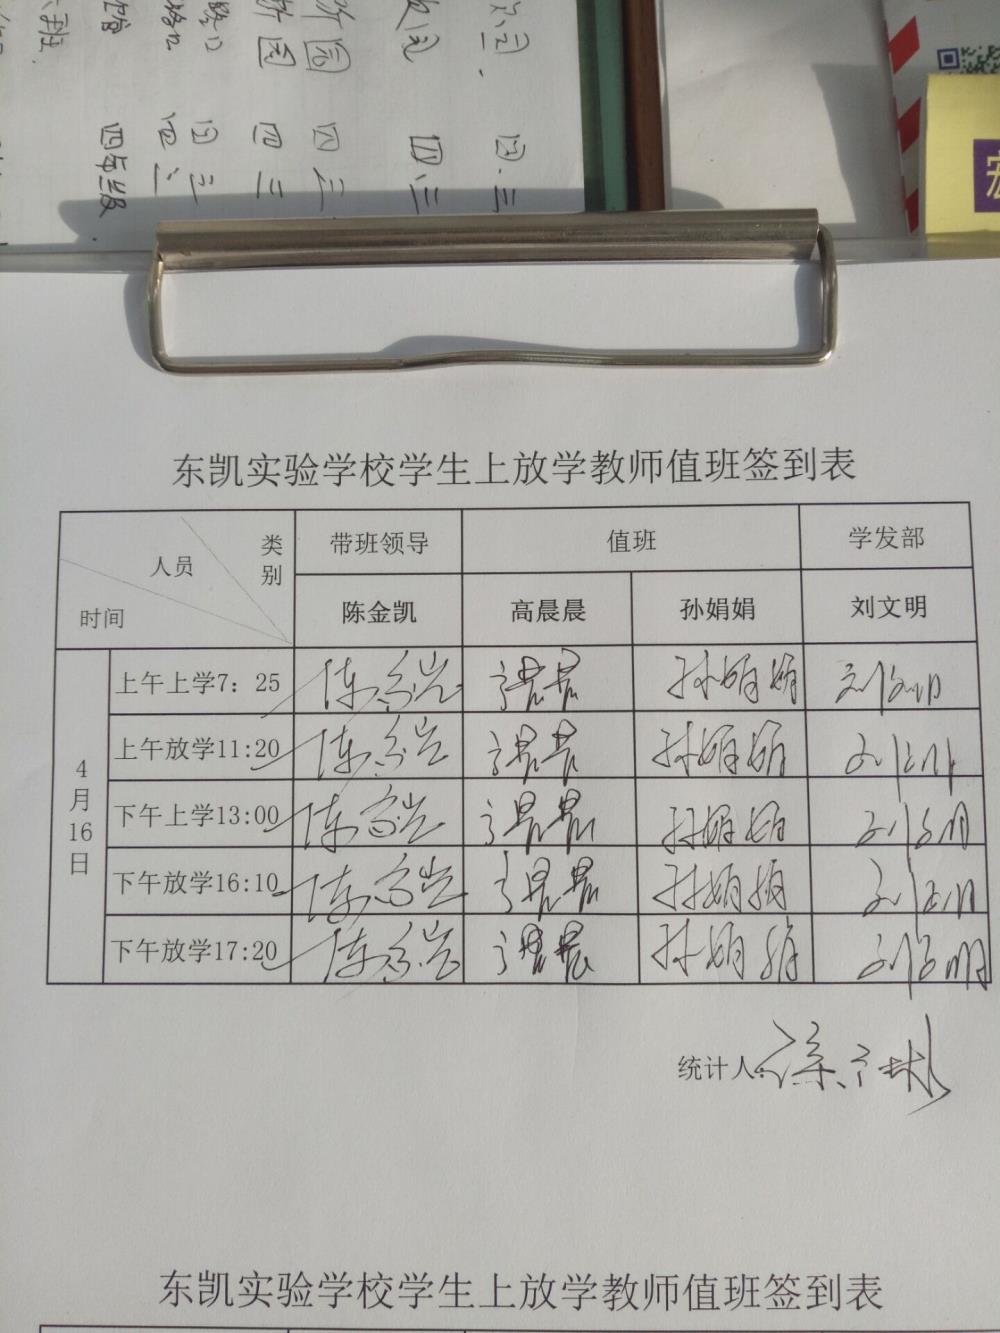 班.
四年级
四 三
四 三
四.三
四.三
东凯实验学校学生上放学教师值班签到表
人员 类别 时间 带班领导 值班 学发部
陈金凯 高晨晨 孙娟娟 刘文明
4月16日
上午上学7：25 陈金凯 高晨晨 孙娟娟 刘文明
上午放学11:20 陈金凯 高晨晨 孙娟娟 刘文明
下午上学13:00 陈金凯 高晨晨 孙娟娟 刘文明
下午放学16:10 陈金凯 高晨晨 孙娟娟 刘文明
下午放学17:20 陈金凯 高晨晨 孙娟娟 刘文明
统计人:
东凯实验学校学生上放学教师值班签到表